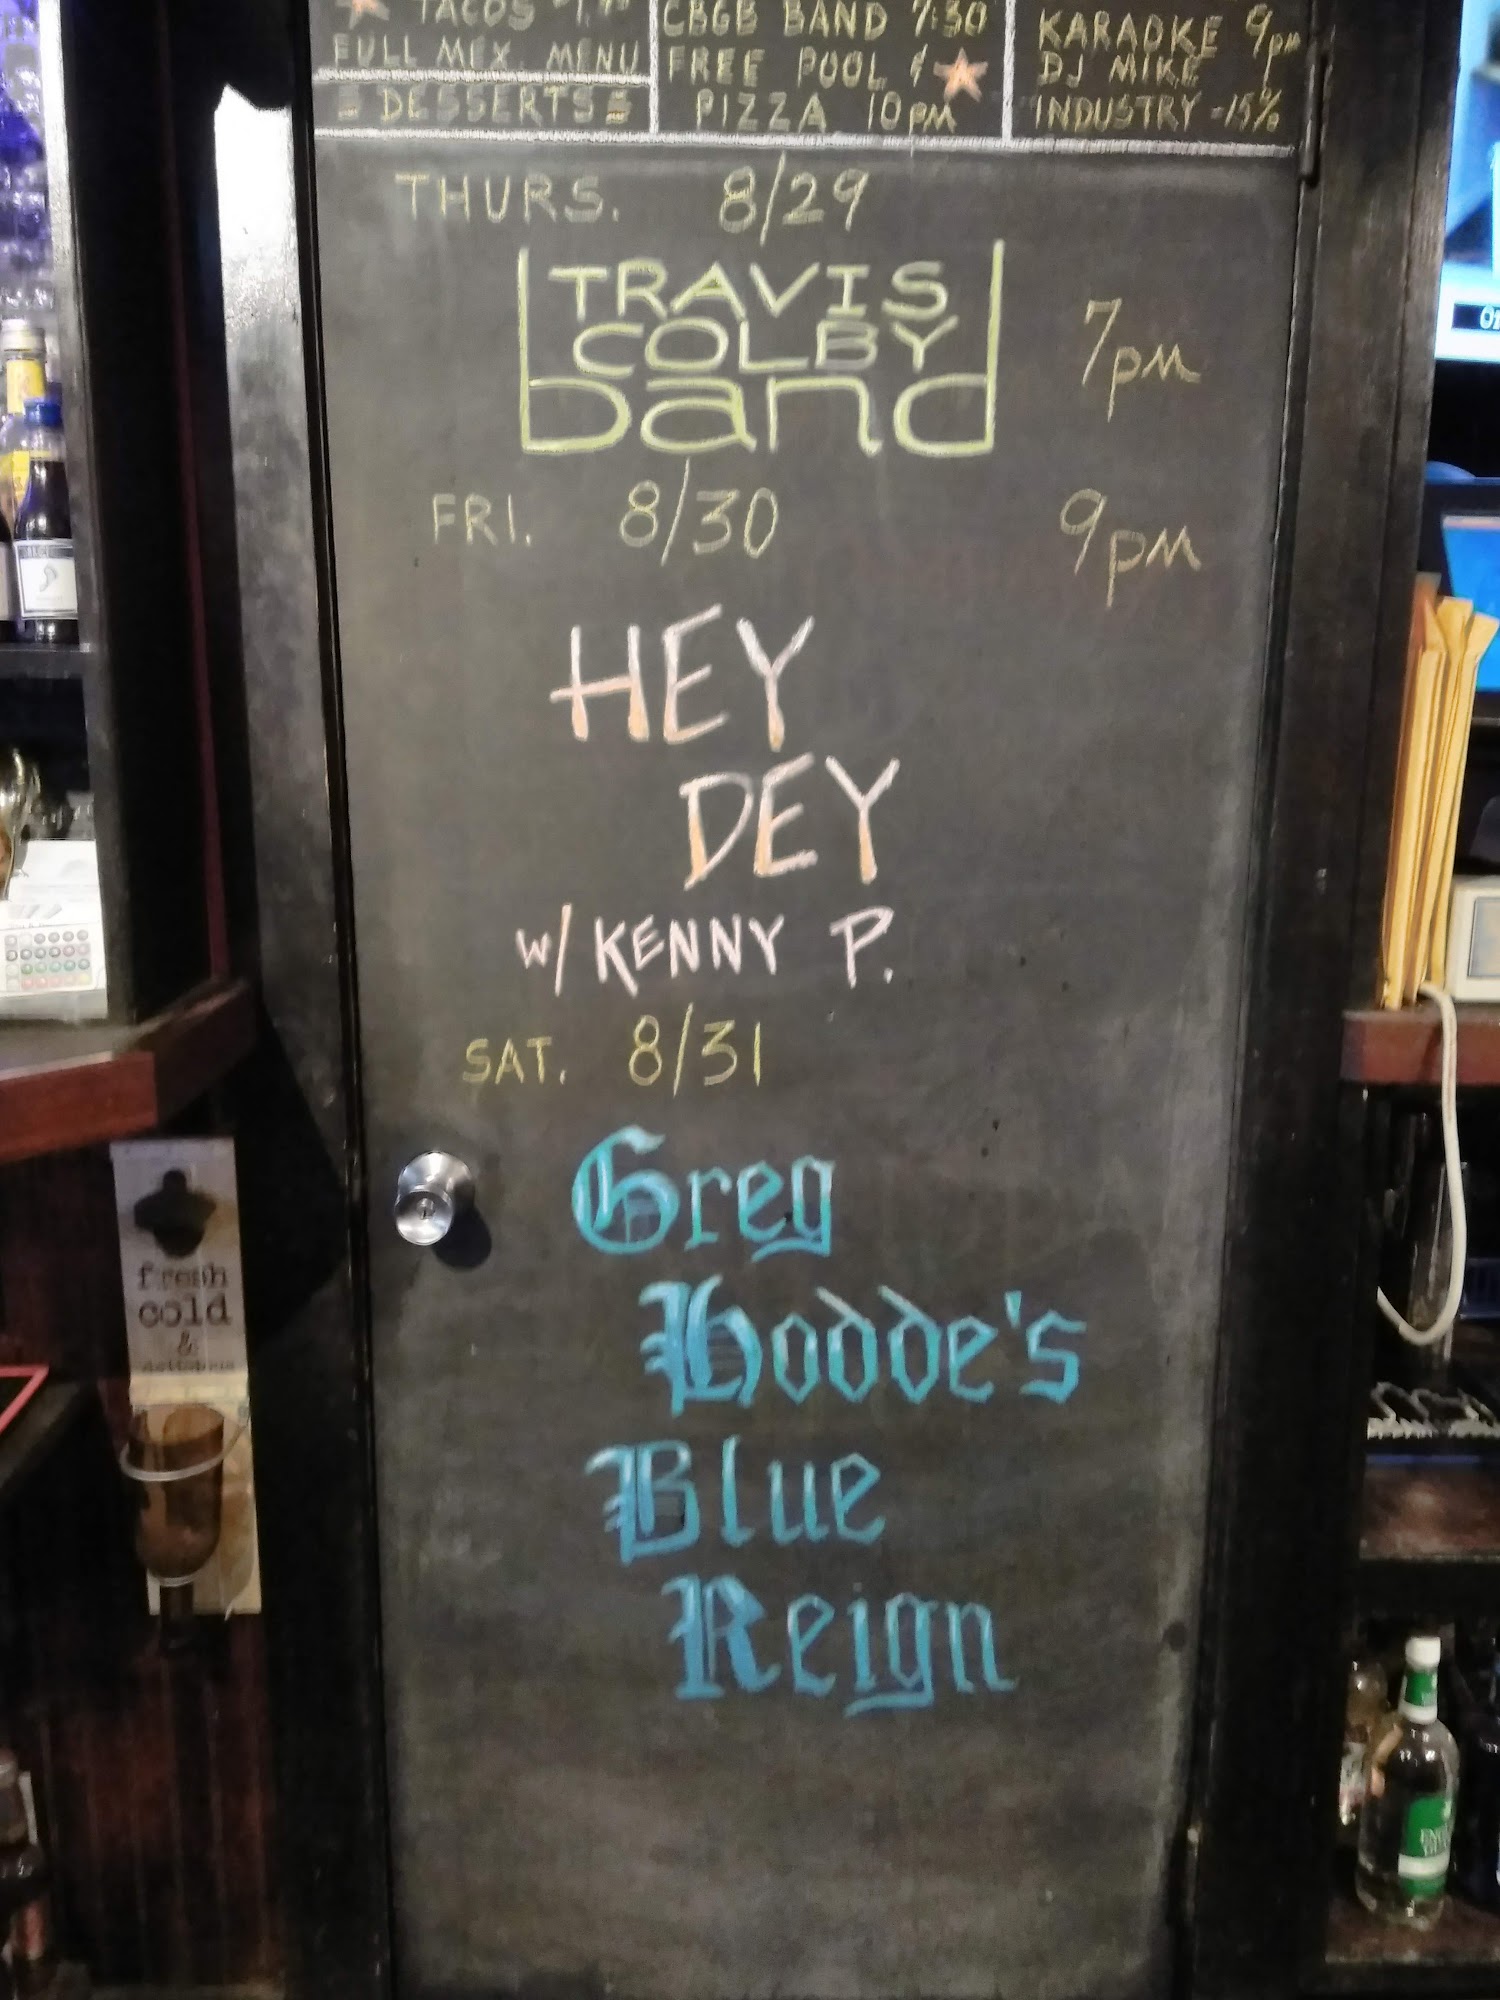 TACOS
FULL MEX. MENU
DESSERTS
CBGB BAND 7:30
FREE POOL &
PIZZA 10PM
KARAOKE 9pm
DJ MIKE
INDUSTRY -15%
THURS. 8/29
TRAVIS
COLBY
band
7pm
FRI. 8/30 9pm
HEY
DEY
w/ KENNY P.
SAT. 8/31
Greg
Hodde's
Blue
Reign
fresh
cold
&